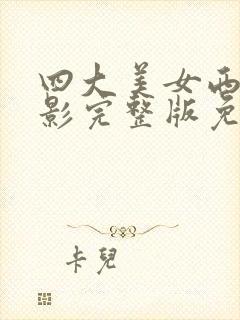 四大美女西
影完整版免
卡兒